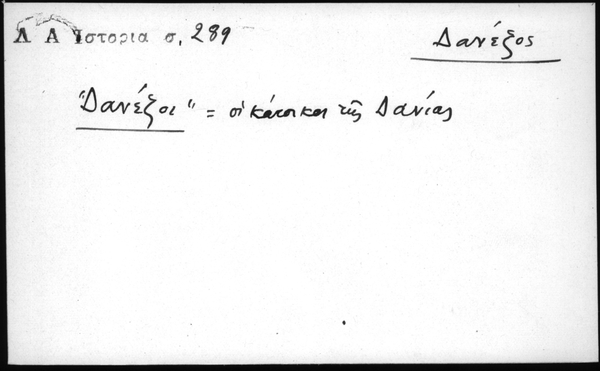 Λ Α Ἱστορια σ. 289
Δανέζος
"Δανέζοι" = οἱ κάτοικοι τῆς Δανίας